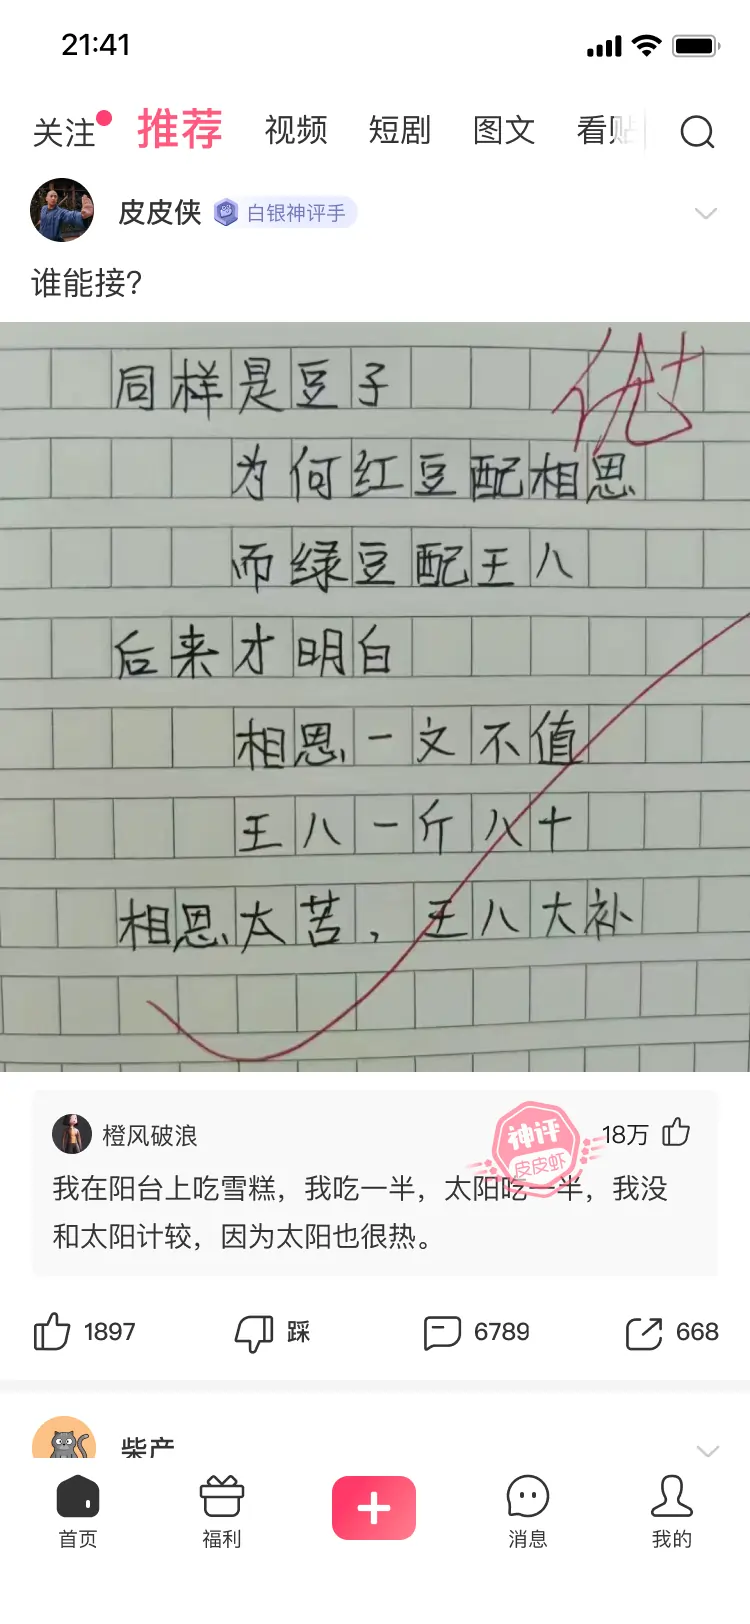 21:41
关注 推荐 视频 短剧 图文 看贴
皮皮侠 白银神评手
谁能接?
优+
同样是豆子
为何红豆配相思
而绿豆配王八
后来才明白
相思一文不值
王八一斤八十
相思太苦，王八大补
橙风破浪 神评 18万
皮皮虾
我在阳台上吃雪糕，我吃一半，太阳吃一半，我没
和太阳计较，因为太阳也很热。
1897 踩 6789 668
柴产
首页 福利 消息 我的